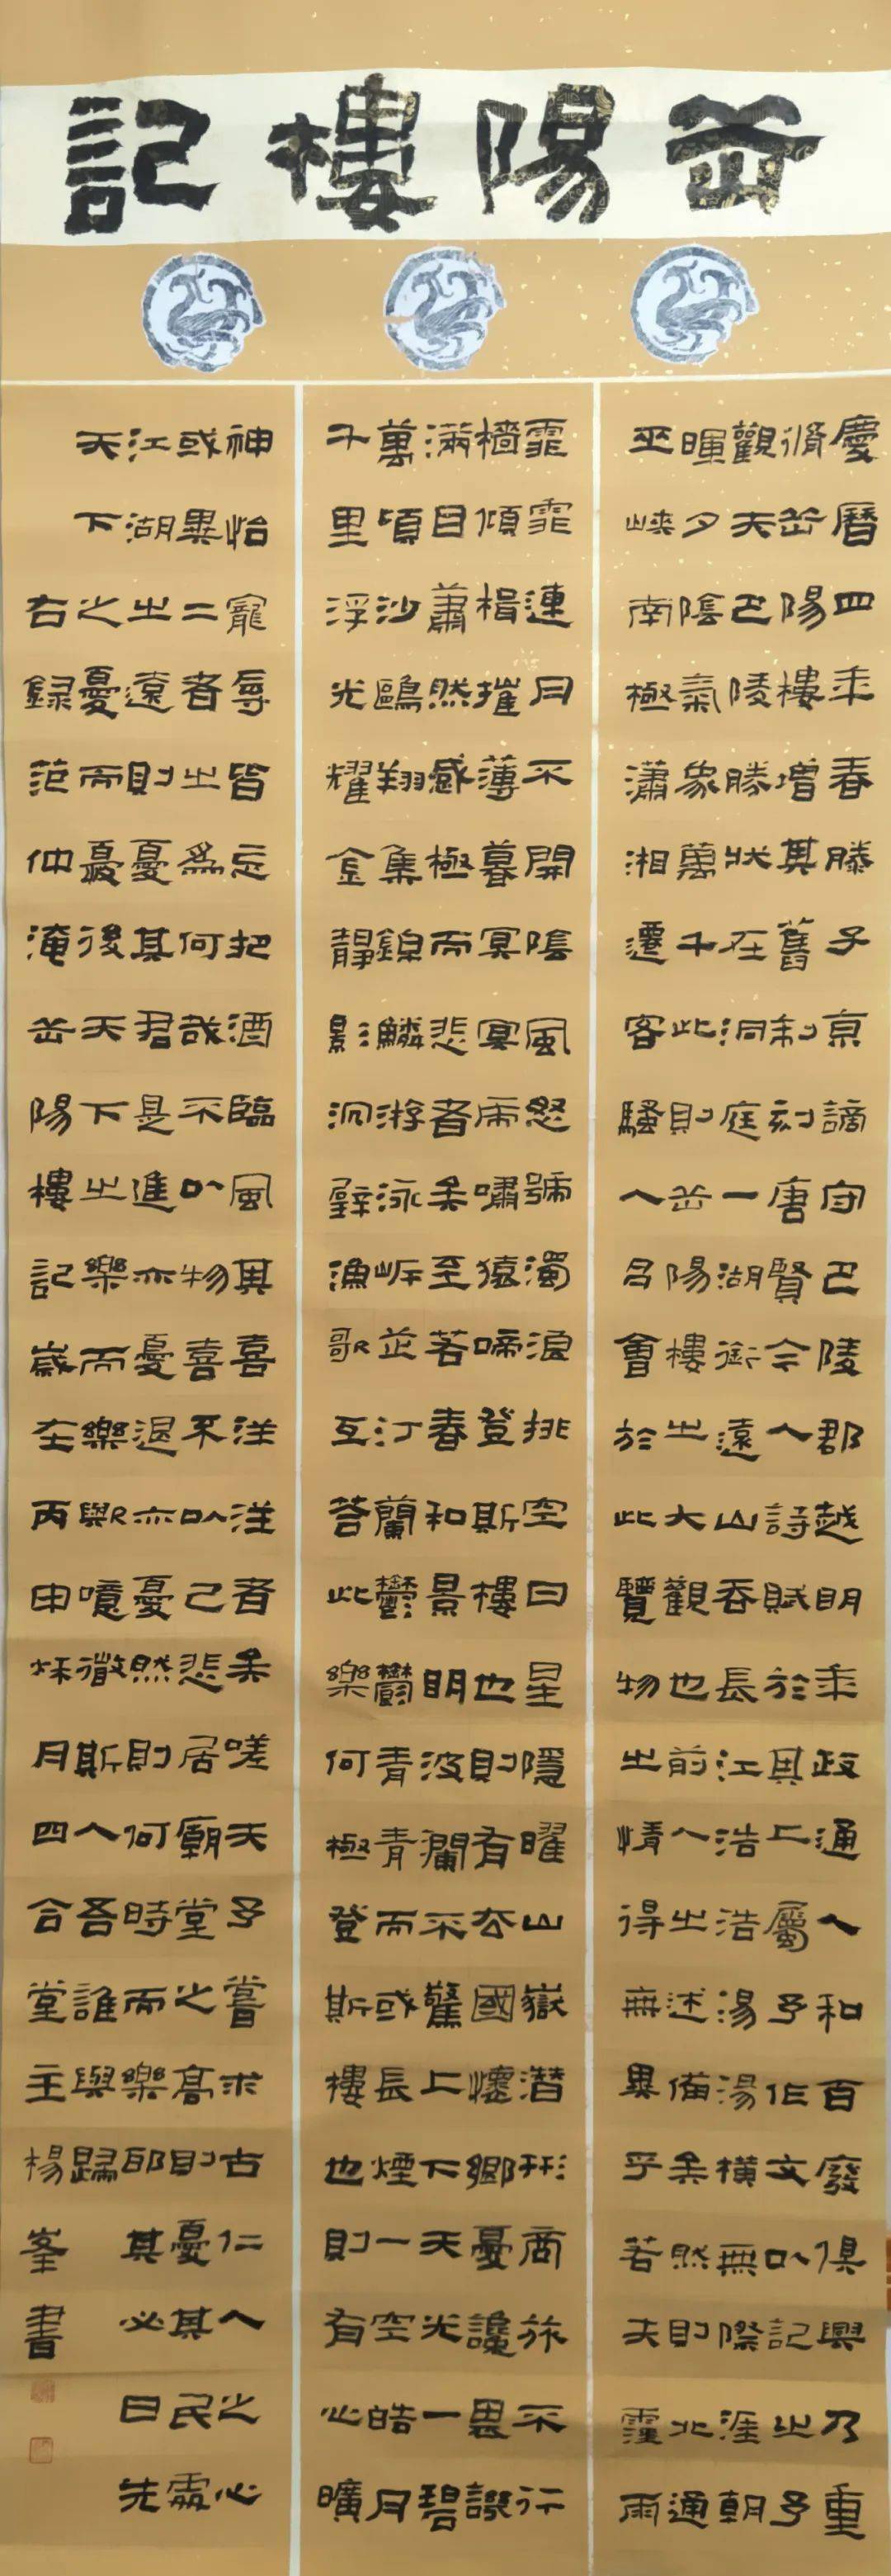 岳陽樓記
慶曆四年春滕子京謫守巴陵郡越明年政通人和百廢俱興乃重
脩岳陽樓增其舊制刻唐賢今人詩賦於其上屬予作文以記之予
觀夫巴陵勝狀在洞庭一湖銜遠山吞長江浩浩湯湯橫無際涯朝
暉夕陰氣象萬千此則岳陽樓之大觀也前人之述備矣然則北通
巫峽南極瀟湘遷客騷人多會於此覽物之情得無異乎若夫霪雨
霏霏連月不開陰風怒號濁浪排空日星隱曜山嶽潛形商旅不行
檣傾楫摧薄暮冥冥虎嘯猿啼登斯樓也則有去國懷鄉憂讒畏譏
滿目蕭然感極而悲者矣至若春和景明波瀾不驚上下天光一碧
萬頃沙鷗翔集錦鱗游泳岸芷汀蘭鬱鬱青青而或長煙一空皓月
千里浮光耀金靜影沉璧漁歌互答此樂何極登斯樓也則有心曠
神怡寵辱皆忘把酒臨風其喜洋洋者矣嗟夫予嘗求古仁人之心
或異二者之為何哉不以物喜不以己悲居廟堂之高則憂其民處
江湖之遠則憂其君是進亦憂退亦憂然則何時而樂耶其必曰先
天下之憂而憂後天下之樂而樂與噫微斯人吾誰與歸
右錄范仲淹岳陽樓記歲在丙申秋月四合堂主楊峯書